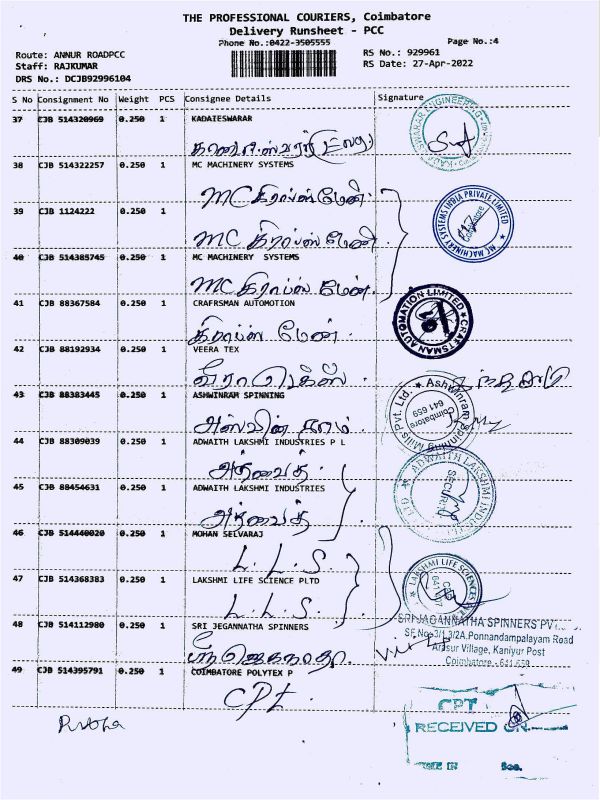 THE PROFESSIONAL COURIERS, Coimbatore
Delivery Runsheet - PCC
Phone No.:0422-3505555
Page No.:4
Route: ANNUR ROADPCC
Staff: RAJKUMAR
DRS No.: DCJB92996104
RS No.: 929961
RS Date: 27-Apr-2022
S No Consignment No Weight PCS Consignee Details Signature
37 CJB 514320969 0.250 1 KADAIESWARAR
38 CJB 514322257 0.250 1 MC MACHINERY SYSTEMS
MC கிராப்ஸ்மேன்
39 CJB 1124222 0.250 1
MC கிராப்ஸ்மேனி
MC MACHINERY SYSTEMS INDIA PRIVATE LIMITED
Coimbatore
40 CJB 514385745 0.250 1 MC MACHINERY SYSTEMS
MC கிராப்ஸ் மேன்
41 CJB 88367584 0.250 1 CRAFRSMAN AUTOMOTION
கிராப்ஸ் மேன்
CRAFTSMAN AUTOMATION LIMITED
42 CJB 88192934 0.250 1 VEERA TEX
வீரா டெக்ஸ்
43 CJB 88383445 0.250 1 ASHWINRAM SPINNING
அஸ்வின் ராம்
Ashwinram Spinning Mills Pvt. Ltd.
Coimbatore
641 659
44 CJB 88309039 0.250 1 ADWAITH LAKSHMI INDUSTRIES P L
அத்வைத்
45 CJB 88454631 0.250 1 ADWAITH LAKSHMI INDUSTRIES
அத்வைத்
ADWAITH LAKSHMI INDUS
SECURI
46 CJB 514440020 0.250 1 MOHAN SELVARAJ
L.L.S.
47 CJB 514368383 0.250 1 LAKSHMI LIFE SCIENCE PLTD
L.L.S.
LAKSHMI LIFE SCIENCES
48 CJB 514112980 0.250 1 SRI JEGANNATHA SPINNERS
ஸ்ரீ ஜெகநாதா
SRI JAGANNATHA SPINNERS PVT
SF.No.3/1,3/2A,Ponnandampalayam Road
Arasur Village, Kaniyur Post
Coimbatore - 641 659
49 CJB 514395791 0.250 1 COIMBATORE POLYTEX P
CPT.
CPT
RECEIVED ON
TIME IN
Sec.